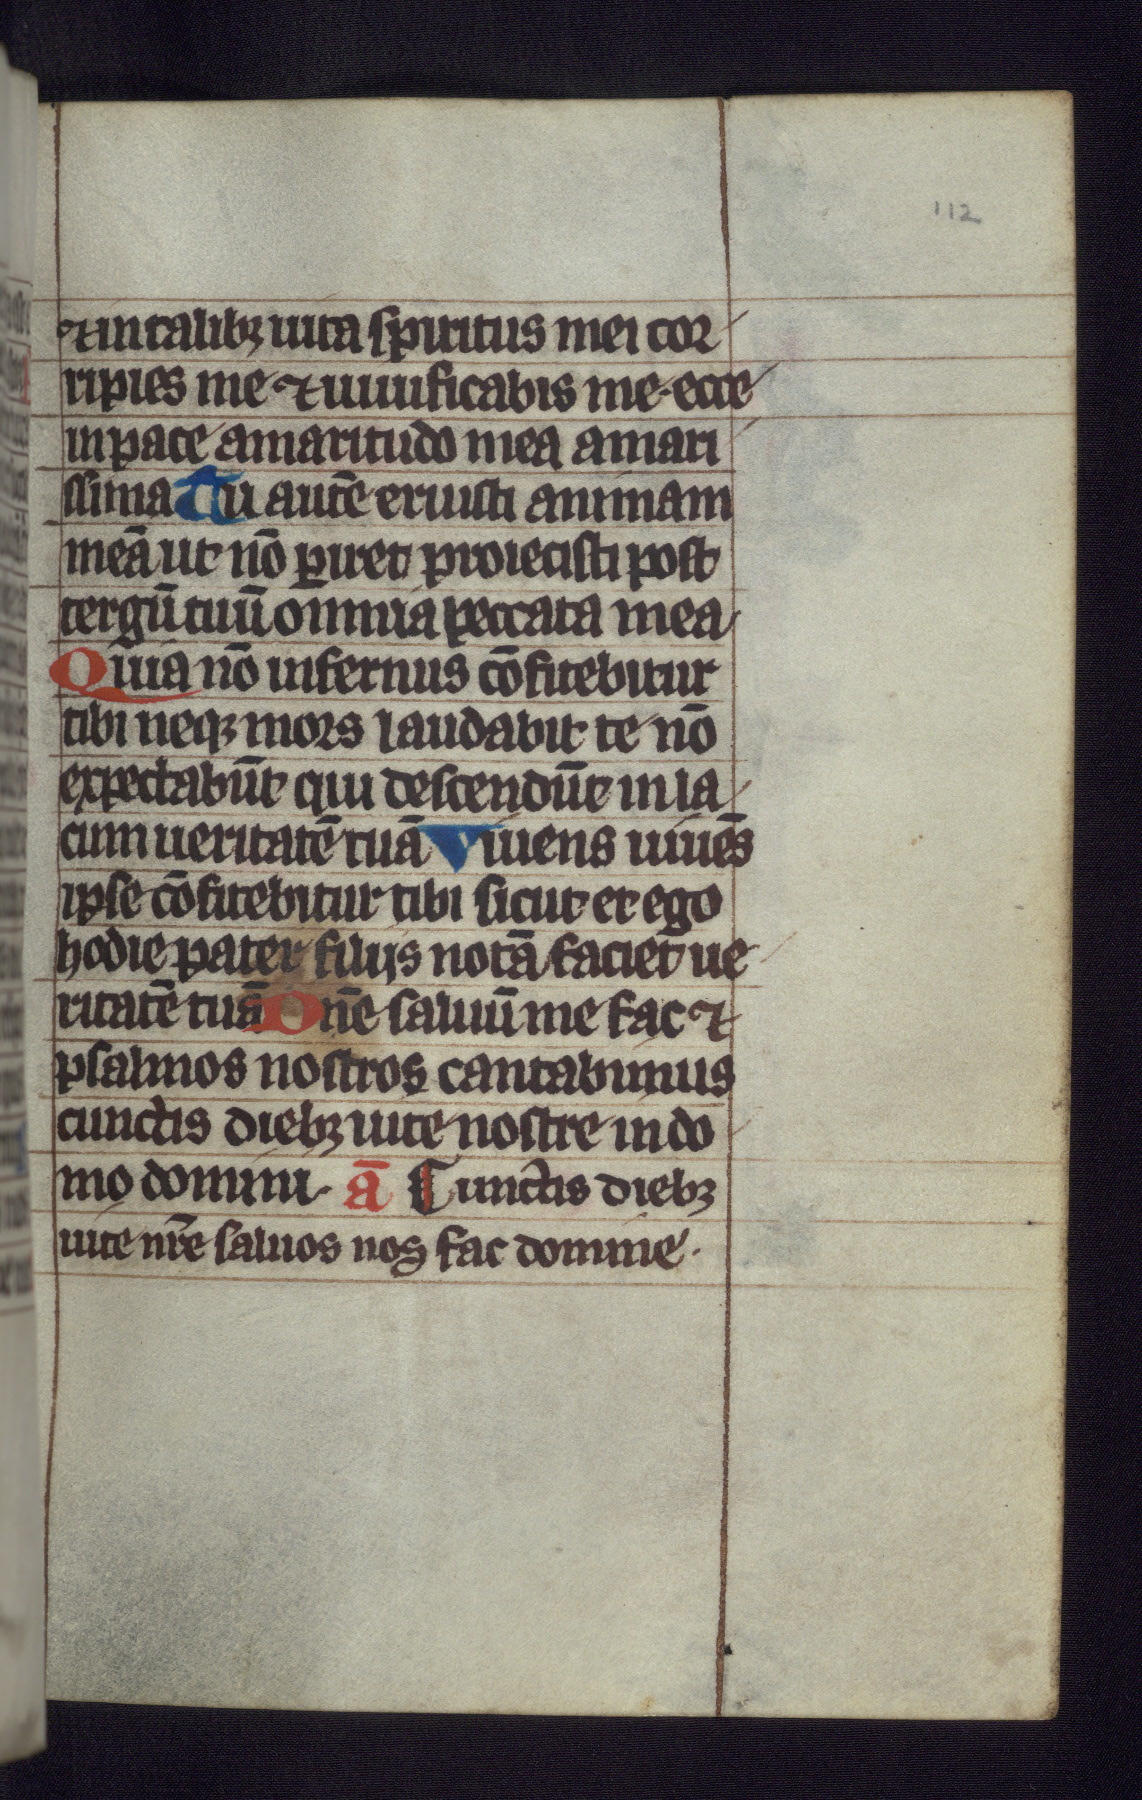 112
⁊ in talibꝫ uita spiritus mei cor
ripies me ⁊ uiuificabis me ecce
in pace amaritudo mea amari
ssima Tu autē eruisti animam
meā ut nō ꝑiret proiecisti post
tergū tuū omnia peccata mea
Quia nō infernus cōfitebitur
tibi neqꝫ mors laudabit te nō
expectabūt qui descendūt in la
cum ueritatē tuā Viuens uiuēs
ipse cōfitebitur tibi sicut et ego
hodie pater filijs notā faciet ue
ritatē tuā Dn̄e saluū me fac ⁊
psalmos nostros cantabimus
cunctis diebꝫ uite nostre in do
mo domini. ā Cunctis diebꝫ
uite nr̄e saluos nos fac domine.